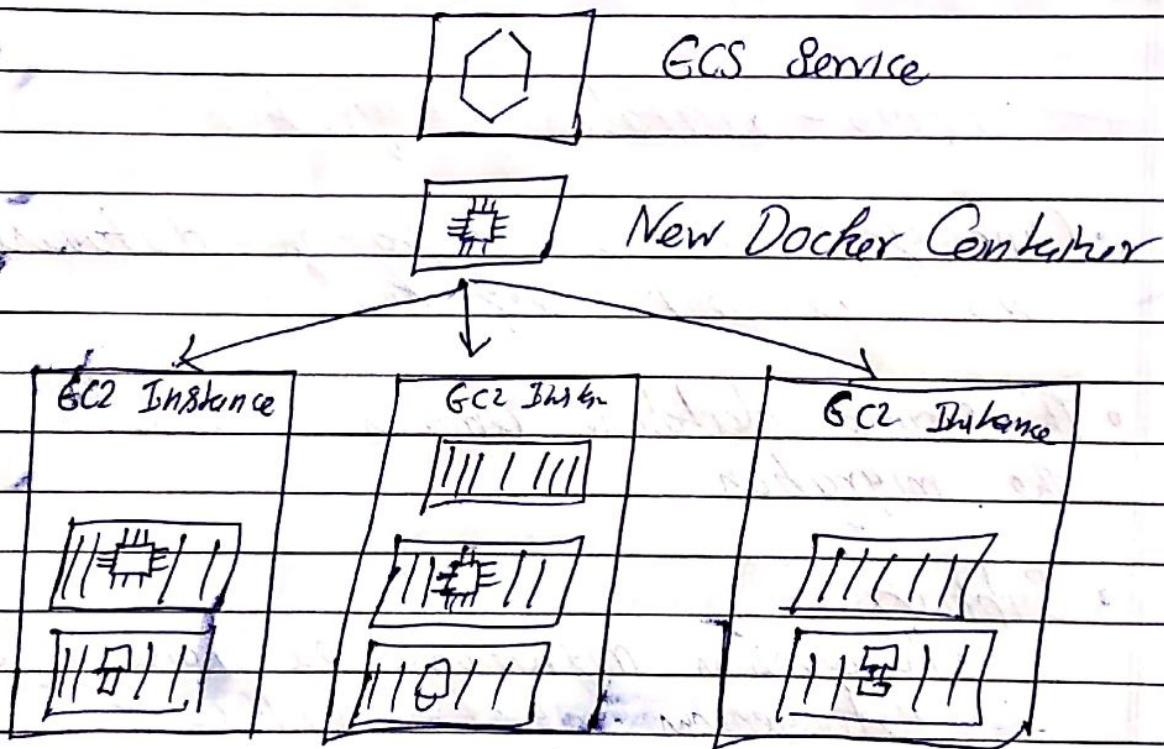 ECS Service
New Docker Container
EC2 Instance
EC2 Instance
EC2